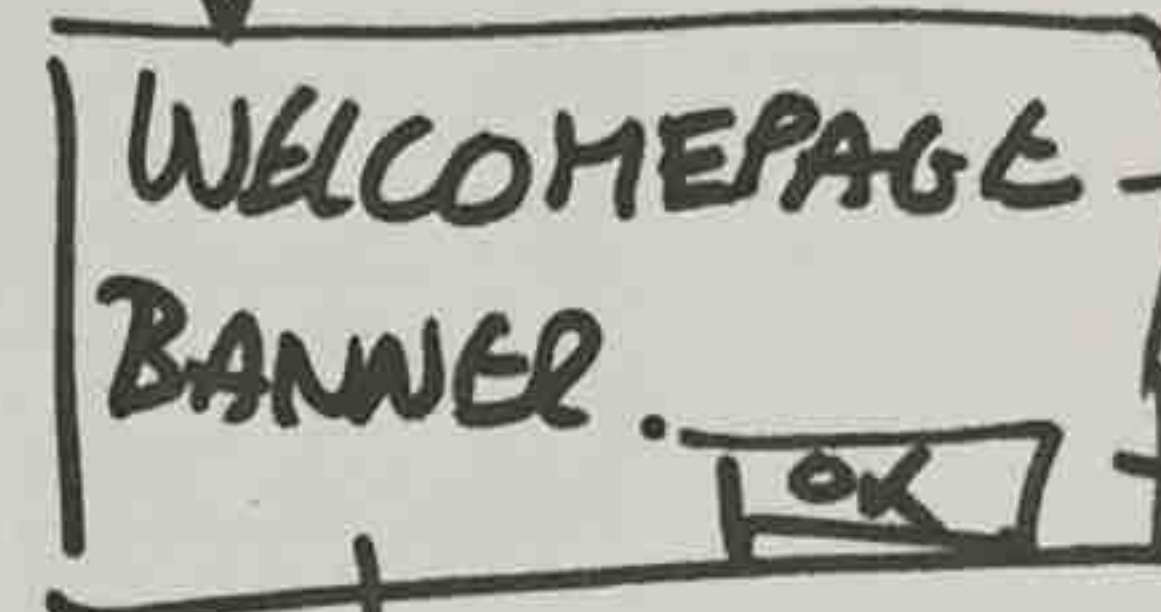 WELCOMEPAGE
BANNER.
OK